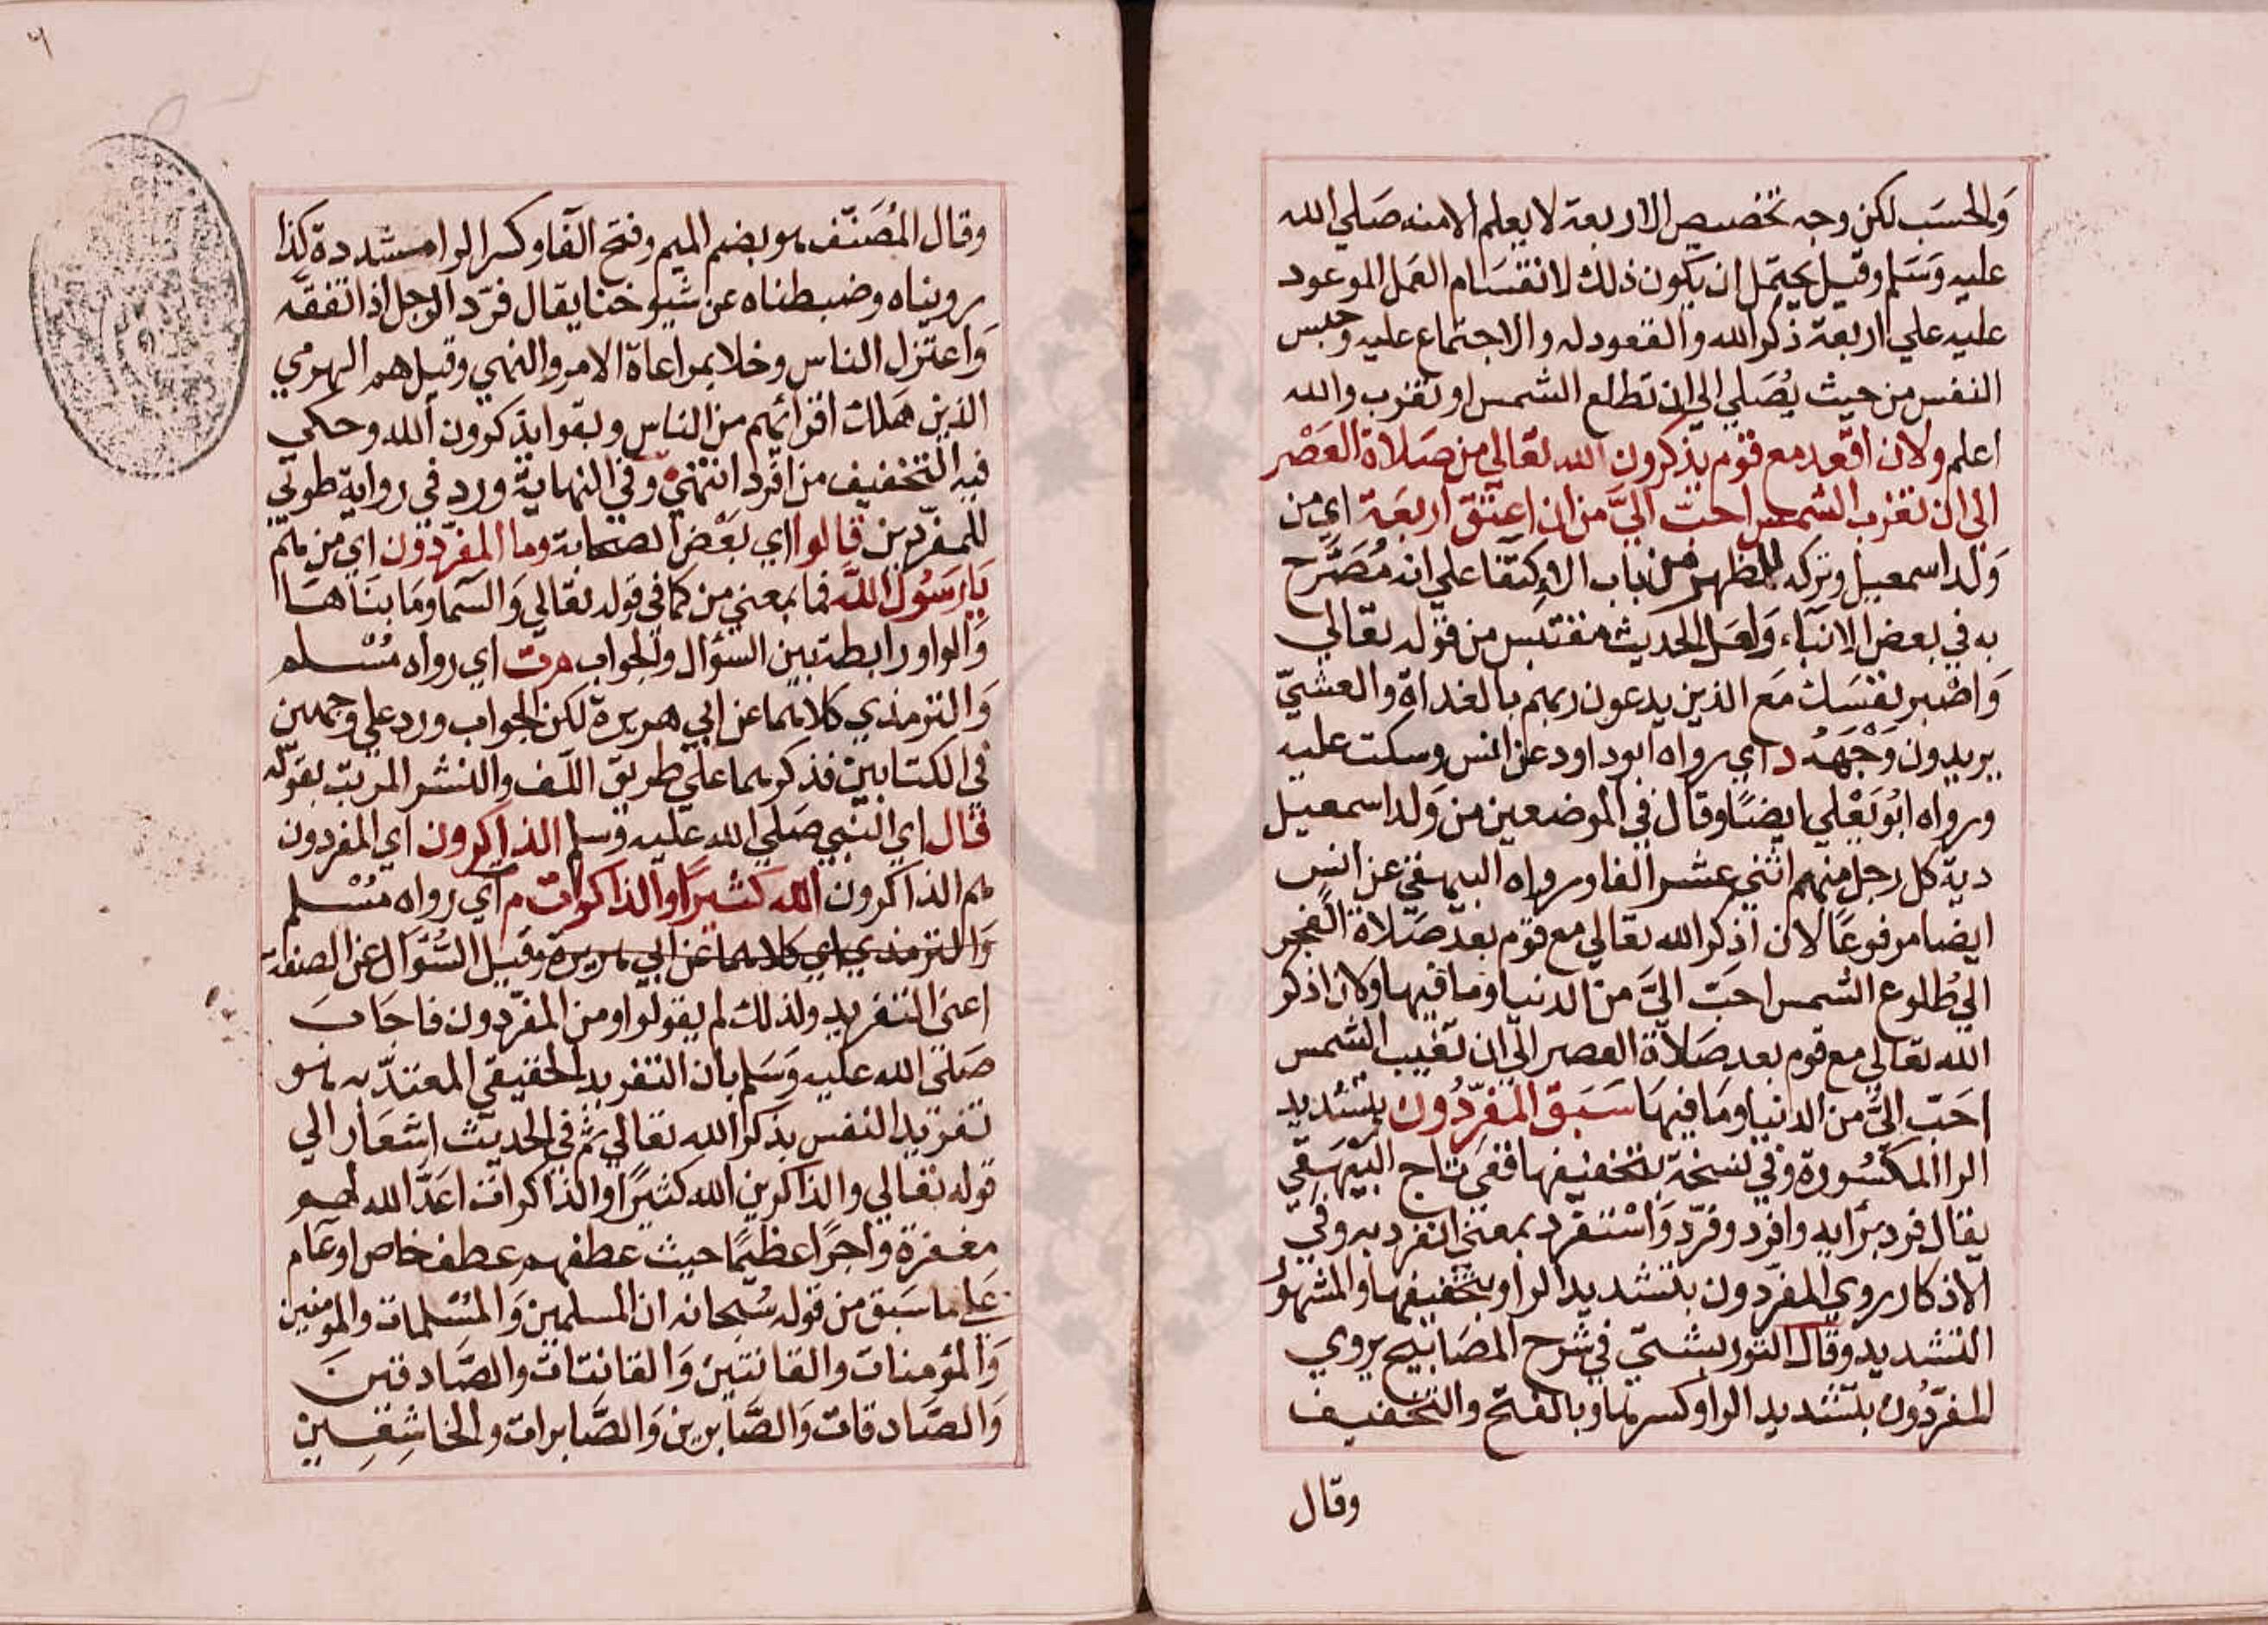 والحسَب لكن وجه تخصيص الاربعة لا يعلم الامنه صَلي الله
عليه وَسَلم وقيل يحتمل ان يكون ذلك لانقسَام العَمل الموعود
عليه علي اربعة ذكر الله والقعود له والاجتماع عليه وحبس
النفس من حيث يُصَلي الي ان تطلع الشمس او تغرب والله
اعلم ولان اقعد مع قوم يذكرون الله تعَالي من صَلاة العَصْر
الي ان تغرب الشمس احبّ اليَّ من ان اعتق اربعَة اي من
وَلد اسمعيل وتركه للظهور من باب الاِكتفا علي انه مُصَرَّح
به في بعض الانبَاء وَلعَل الحديث مقتبس من قوله تعَالي
وَاصْبر نفسَك مَع الذين يدعون ربهم بالغداة والعشيّ
يريدون وَجْهَهُ د اي رواه ابوداود عن انس وسكت عليه
ورواه ابُويَعْلي ايضًا وقال في الموضعين من وَلد اسمعيل
دية كل رجل منهم اثني عشر الفا ورواه البيهقي عن انس
ايضا مرفوعًا لان اذكر الله تعَالي مع قوم بعد صَلاة الفجر
الي طُلوع الشمس احَبّ اليَّ من الدنيا وما فيها ولان اذكر
الله تعَالي مع قوم بعد صَلاة العصر الي ان تغيب الشمس
احَبّ اليَّ من الدنيا ومَا فيهَا سَبَق المفرِّدُون بتشديد
الرا المكسُورة وفي نسخة بتخفيفها ففي تاج البَيْهَقِي
يقال فرد برَايه وافرد وفرّد وَاسْتفرد بمعني انفرد به وفي
الاذكار روي المفرّدون بتشديد الرا وبتخفيفها والمشهور
التشديد وقال التوربشتي في شرح المصَابيح يروي
المفرّدُون بتشديد الرا وكسرها وبالفتح والتخفيف
وقال
وقال المُصَنّف هو بضم الميم وفتح الفا وكسر الرا مشددة كذا
رويناه وضبطناه عن شيوخنا يقال فرّد الرجل اذا تفقّه
وَاعتزل الناس وخلا بمراعاة الامر والنهي وقيل هم الهرمي
الذين هَلك اقرانهم من الناس وبقوا يذكرون الله وحكي
فيه التخفيف من افرد انتهي وفي النهاية ورد في رواية طوبي
للمفرّدين قالوا اي بَعْض الصحابة وما المفرّدون اي من هم
يَا رَسُول الله فما بمعني من كما في قوله تعَالي وَالسّما وما بنَاهَا
وَالواو رابطة بين السؤال والجواب مرت اي رواه مُسْلم
وَالترمذي كلاهما عن ابي هريرة لكن الجواب ورد علي وجهين
في الكتابين فذكرهما علي طريق اللّف والنشر المرتب بقوله
قال اي النبي صَلي الله عليه وسلم الذاكرون اي المفردون
هم الذاكرون الله كثيرًا والذاكرات م اي رواه مُسْلم
وَالترمذي اي كلاهما عن ابي هريرة وقيل السُّؤال عن الصفة
اعني التفريد ولذلك لم يقولوا ومن المفرّدون فاجَابَ
صَلي الله عليه وَسَلم بان التفريد الحقيقي المعتدّ به هو
تفريد النفس بذكر الله تعَالي ثم في الحديث اشعَار الي
قوله تعَالي والذاكرين الله كثيرًا والذاكرات اعَدَّ الله لهم
مغفرة وَاجرًا عظيمًا حيث عطفهم عطف خاص او عَام
عَلي ما سَبق من قوله سُبحانه ان المسلمين وَالمسْلمات والمومنين
وَالمؤمنات والقانتين وَالقانتات والصَّادقينَ
وَالصَّادقات وَالصَّابرين وَالصَّابرات والخاشِعِين